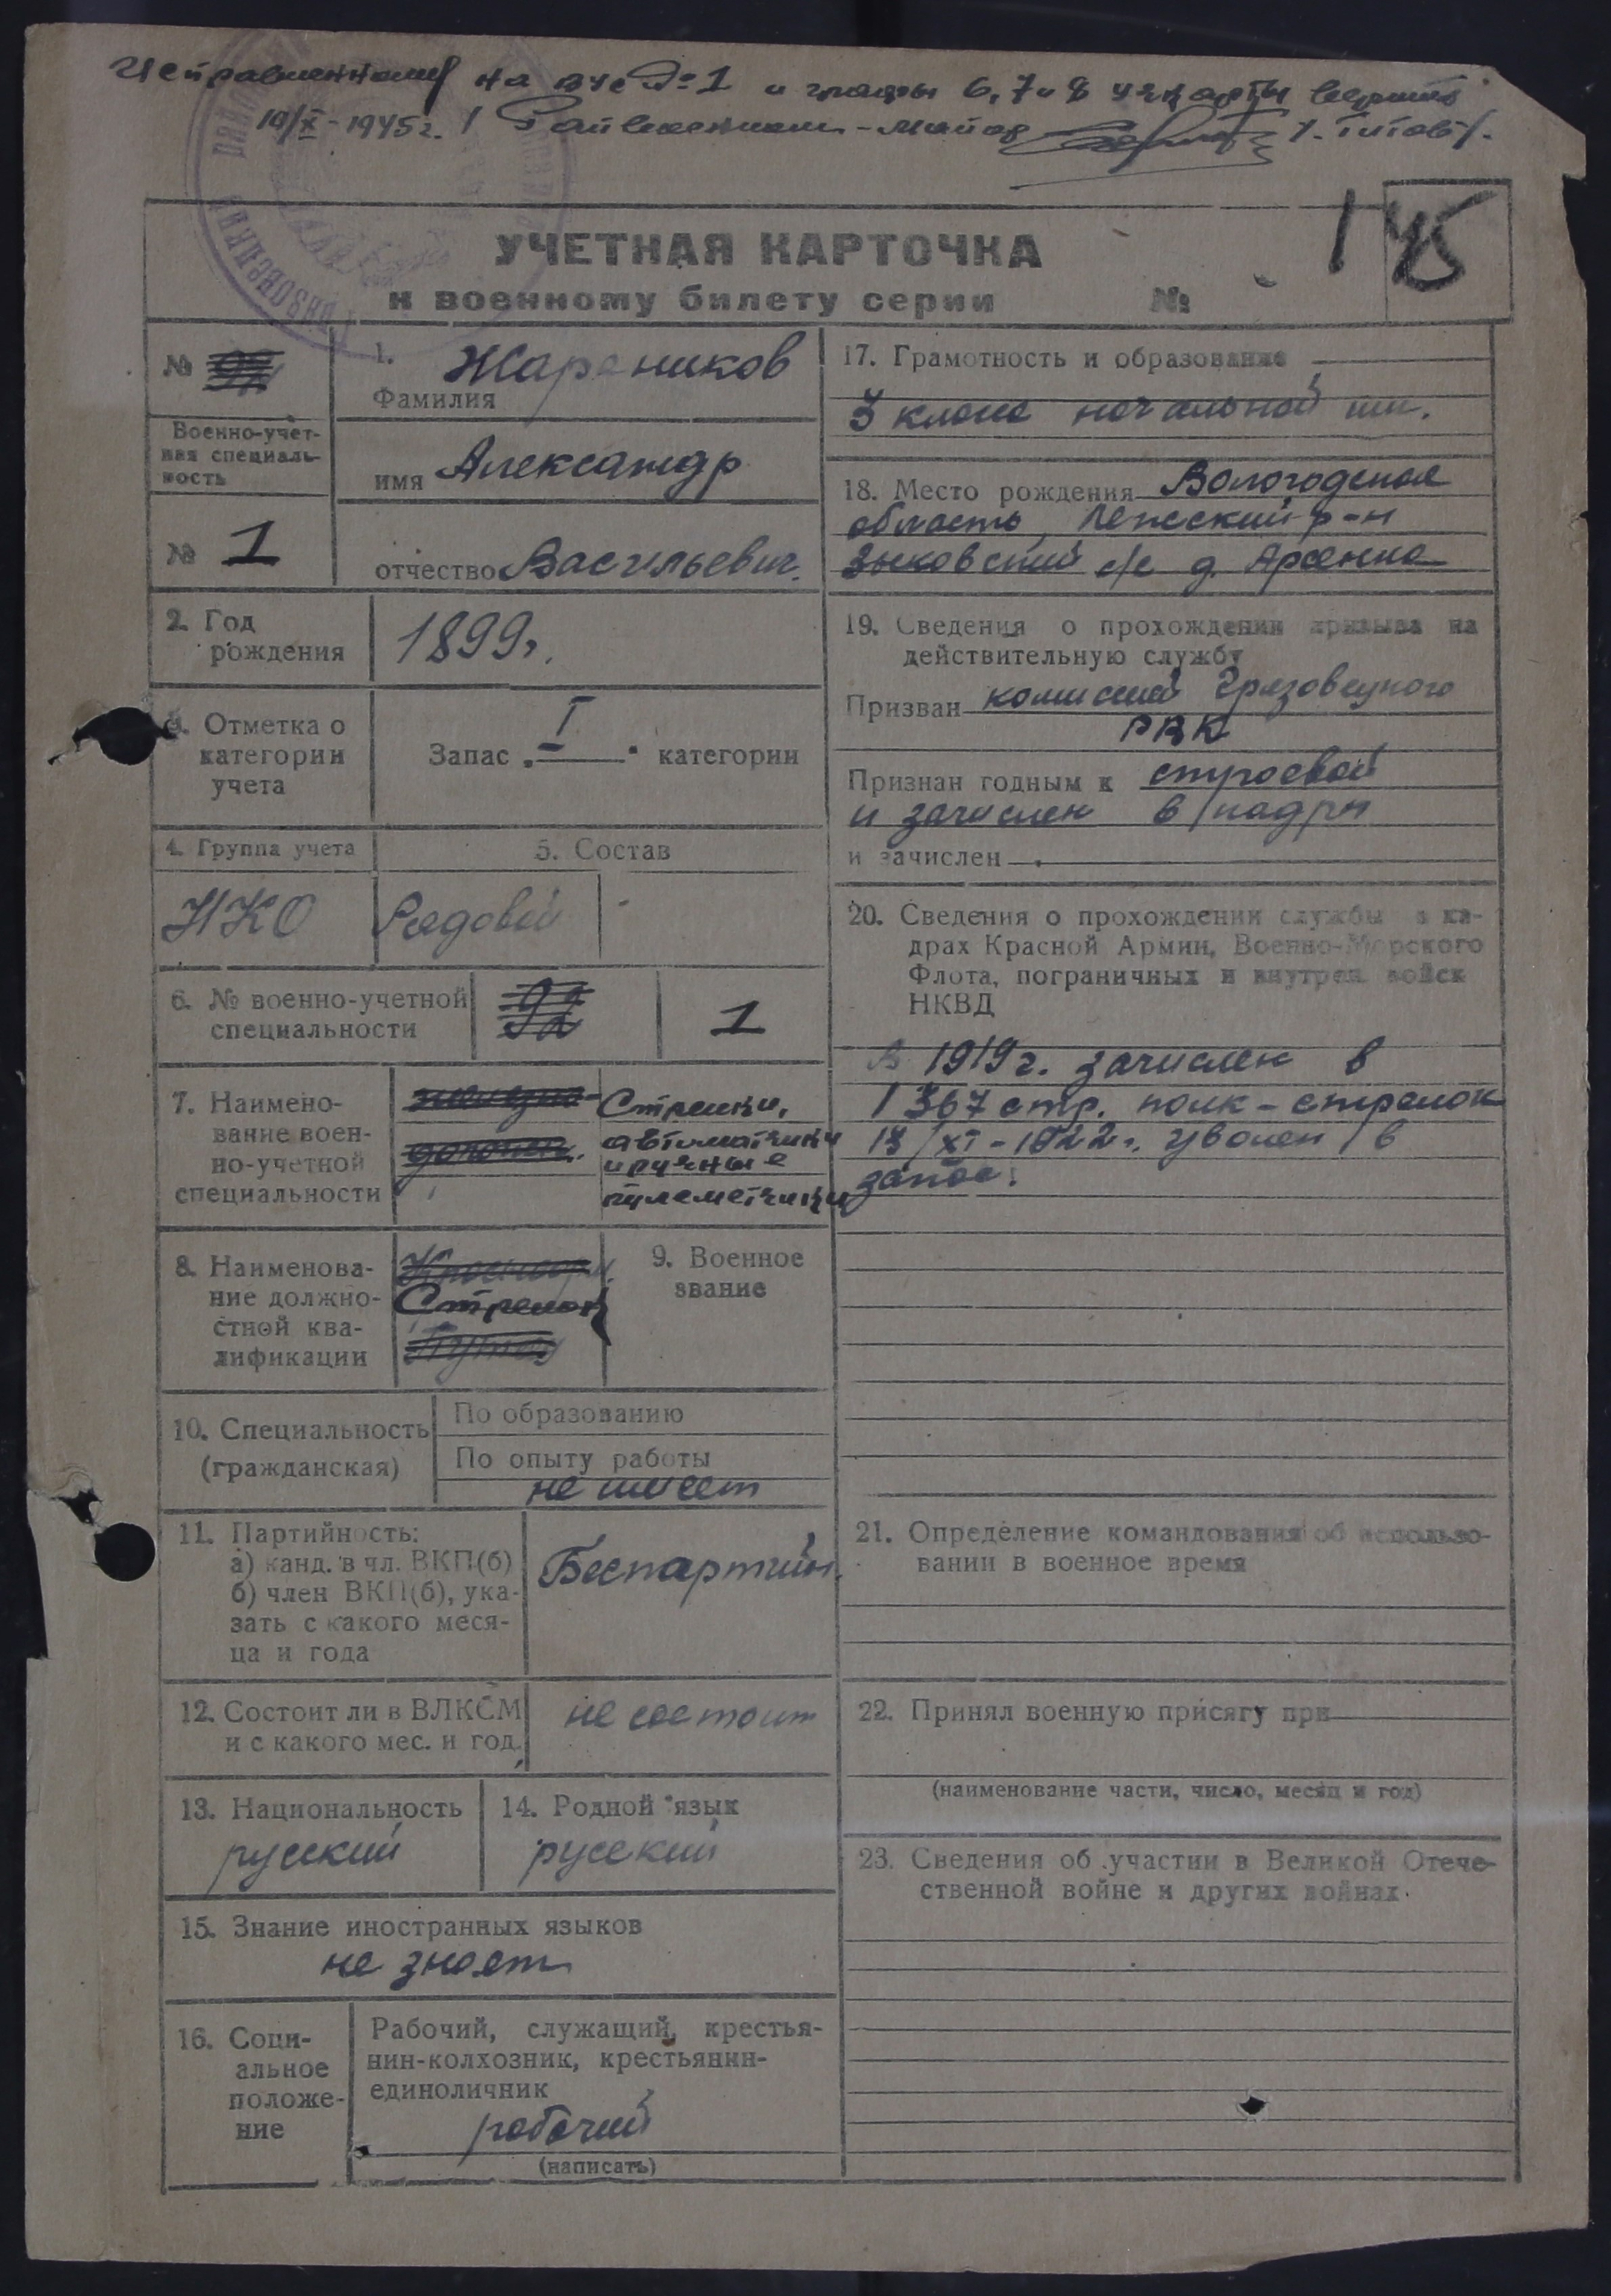 Исправленному на вус №1 и графы 6, 7 и 8 уч. карты верить
10/X-1945г. Райвоенком-майор /Титов/.
145
УЧЕТНАЯ КАРТОЧКА
к военному билету серии №
№
Военно-учет-
ная специаль-
ность
№ 1
1. Жараников
Фамилия
имя Александр
отчество Васильевич.
2. Год
рождения
1899г.
3. Отметка о
категории
учета
Запас „I" категории
4. Группа учета
НКО
5. Состав
Рядовой
6. № военно-учетной
специальности
92
1
7. Наимено-
вание воен-
но-учетной
специальности
железно-
дорожн.
Стрелки,
автоматчики
и ручные
пулеметчики
8. Наименова-
ние должно-
стной ква-
лификации
Стрелок
9. Военное
звание
10. Специальность
(гражданская)
По образованию
По опыту работы
не имеет
11. Партийность:
а) канд. в чл. ВКП(б)
б) член ВКП(б), ука-
зать с какого меся-
ца и года
Беспартийн.
12. Состоит ли в ВЛКСМ
и с какого мес. и год.
не состоит
13. Национальность
русский
14. Родной язык
русский
15. Знание иностранных языков
не знает
16. Соци-
альное
положе-
ние
Рабочий, служащий, крестья-
нин-колхозник, крестьянин-
единоличник
рабочий
(написать)
17. Грамотность и образование
3 класса начальной шк.
18. Место рождения Вологодская
область, Лежский р-н
Зыковский с/с д. Арсенка
19. Сведения о прохождении призыва на
действительную службу
Призван комиссией Грязовецкого
РВК
Признан годным к строевой
и зачислен в кадры
и зачислен
20. Сведения о прохождении службы в ка-
драх Красной Армии, Военно-Морского
Флота, пограничных и внутрен. войск
НКВД
В 1919г. зачислен в
1367 стр. полк - стрелок
13/XI-1922г. уволен в
запас.
21. Определение командования об использо-
вании в военное время
22. Принял военную присягу при
(наименование части, число, месяц и год)
23. Сведения об участии в Великой Отече-
ственной войне и других войнах